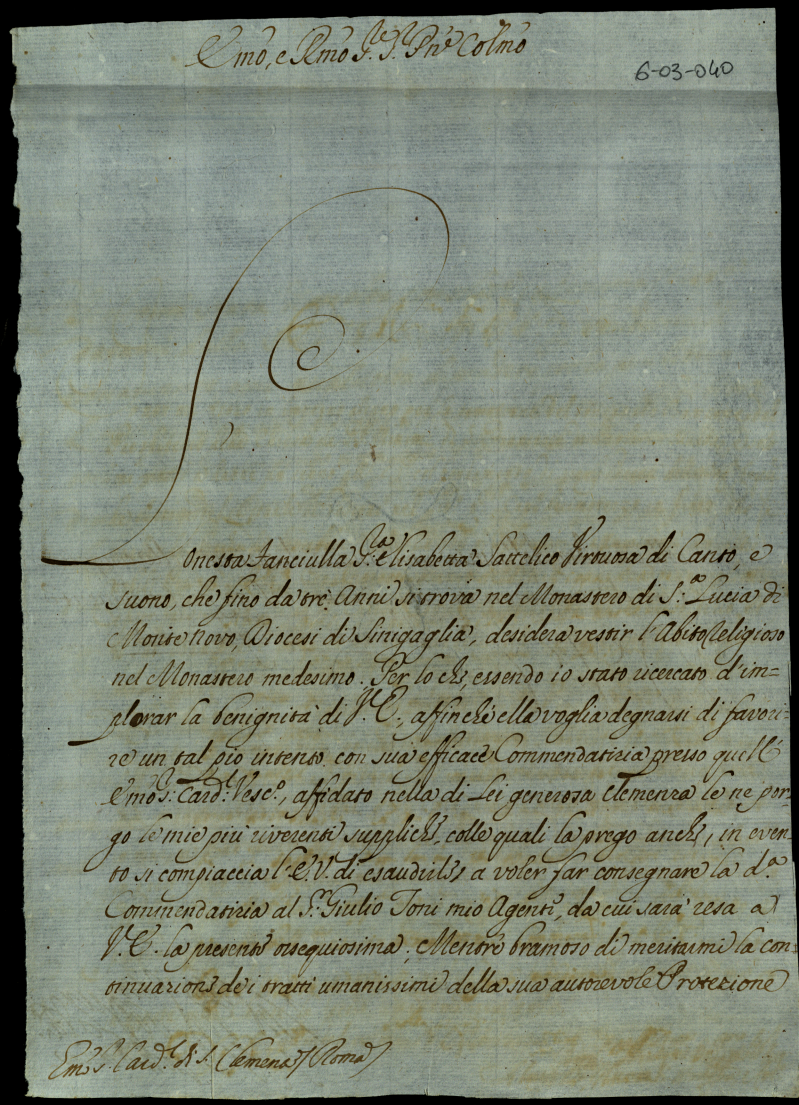 Emo, e Rmo Sr. Sr. Pne Colmo
6-03-040
Onesta Fanciulla Sa. Elisabetta Sattelico Virtuosa di Canto, e
suono, che fino da tre Anni si trova nel Monastero di S.a Lucia di
Monte Novo, Diocesi di Sinigaglia, desidera vestir l'Abito Religioso
nel Monastero medesimo. Per lo che, essendo io stato ricercato d'im=
plorar la benignità di V. E., affinche ella voglia degnarsi di favori=
re un tal pio intento con sua efficace Commendatizia presso quell'
Emo Sr. Card.l Vesc.o, affidato nella di Lei generosa Clemenza le ne por=
go le mie più riverenti suppliche, colle quali la prego anche, in even=
to si compiaccia l'E.V. di esaudirle, a voler far consegnare la d.a
Commendatizia al Sr. Giulio Toni mio Agente, da cui sarà resa a
V. E. la presente ossequiosima; Mentre bramoso di meritarmi la con=
tinuazione de i tratti umanissimi della sua autorevole Protezione
Emo S. Card.l di S. Clemente / Roma /